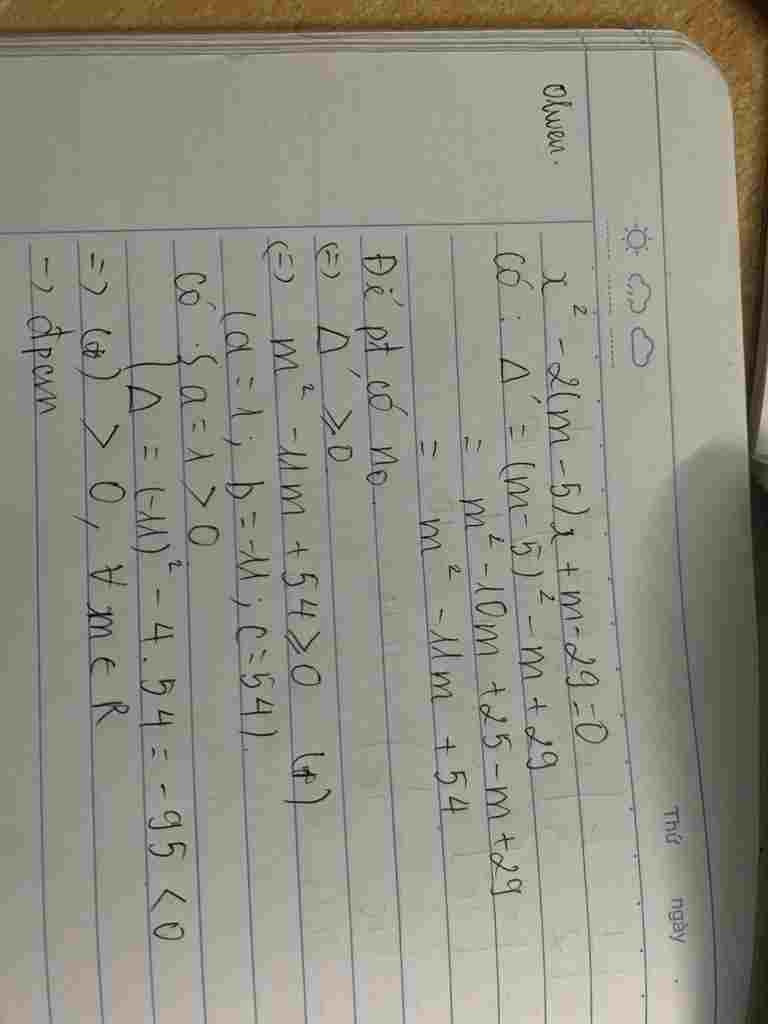 Thứ ngày
Olwen.
x² - 2(m - 5)x + m - 29 = 0
Có : Δ' = (m - 5)² - m + 29
= m² - 10m + 25 - m + 29
= m² - 11m + 54
Để pt có no
(=) Δ' ≥ 0
(=) m² - 11m + 54 ≥ 0 (*)
(a = 1; b = -11; c = 54).
Có : { a = 1 > 0
Δ = (-11)² - 4.54 = -95 < 0
=> (*) > 0, ∀ m ∈ R
-> đpcm